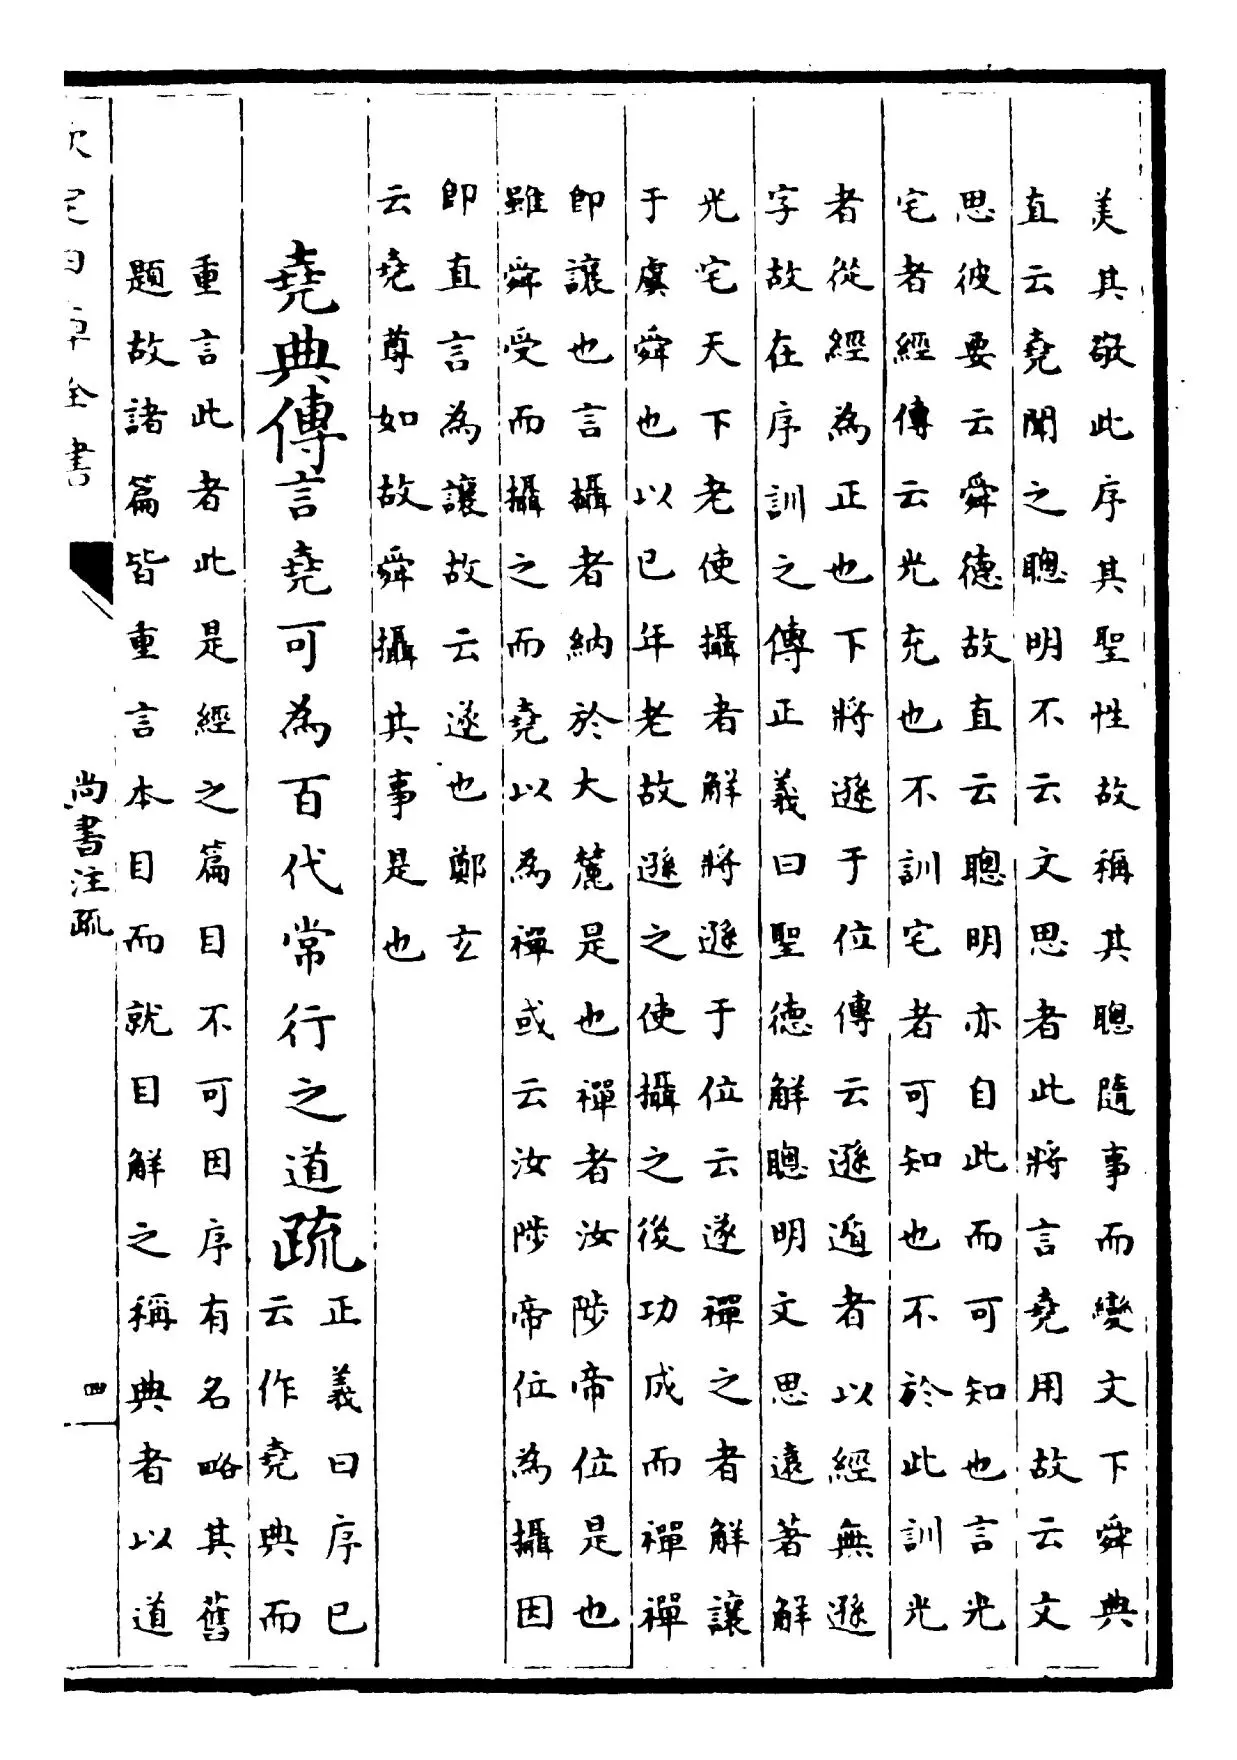 美其敬此序其聖性故稱其聰隨事而變文下舜典
直云堯聞之聰明不云文思者此將言堯用故云文
思彼要云舜德故直云聰明亦自此而可知也言光
宅者經傳云光充也不訓宅者可知也不於此訓光
者從經為正也下將遜于位傳云遜遁者以經無遜
字故在序訓之傳正義曰聖德解聰明文思遠著解
光宅天下老使攝者解將遜于位云遂禪之者解讓
于虞舜也以已年老故遜之使攝之後功成而禪禪
即讓也言攝者納於大麓是也禪者汝陟帝位是也
雖舜受而攝之而堯以為禪或云汝陟帝位為攝因
即直言為讓故云遂也鄭玄
云堯尊如故舜攝其事是也
堯典傳言堯可為百代常行之道疏
正義曰序已
云作堯典而
重言此者此是經之篇目不可因序有名略其舊
題故諸篇皆重言本目而就目解之稱典者以道
欽定四庫全書
尚書注疏
四